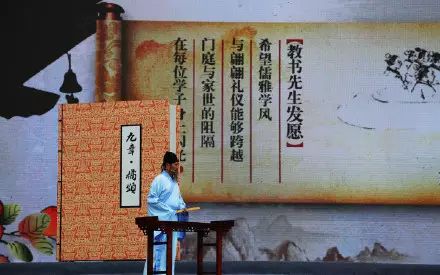 【教书先生发愿】
希望儒雅学风
与翩翩礼仪能够跨越
门庭与家世的阻隔
在每位学子身上闪光
九章·橘颂